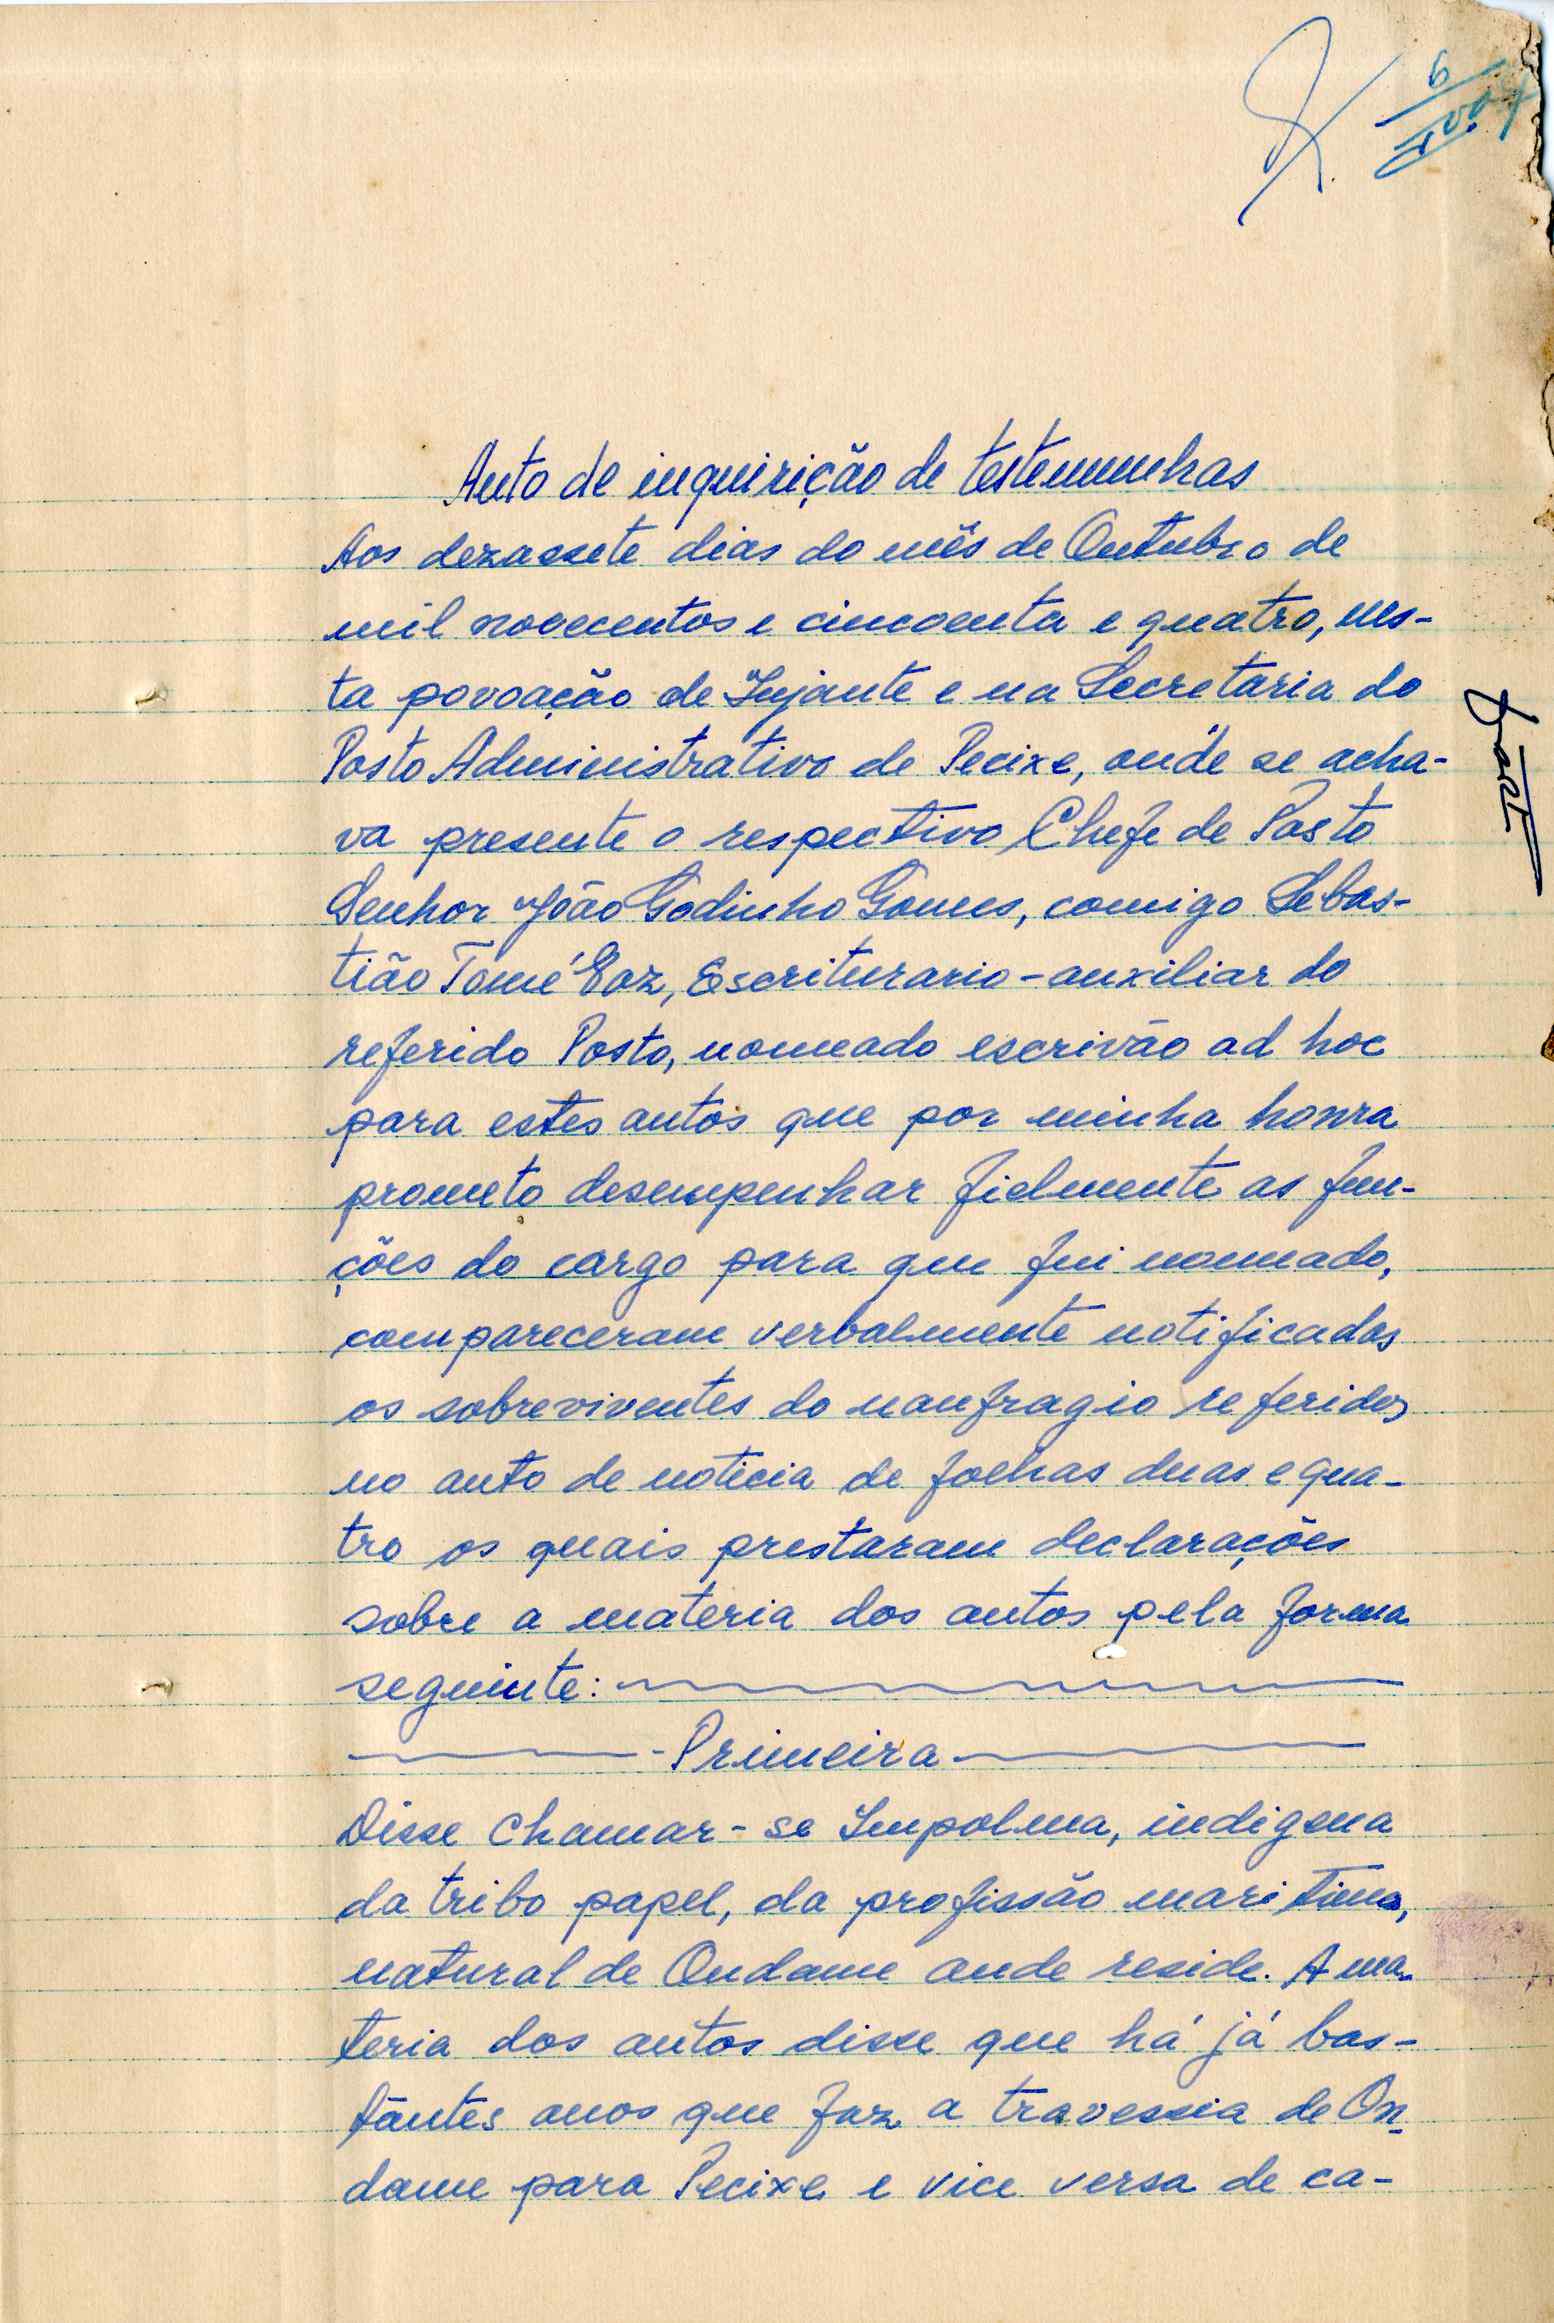 6
Auto de inquirição de testemunhas
Aos dezassete dias do mês de Outubro de
mil novecentos e cincoenta e quatro, nes-
ta povoação de Jujante e na Secretaria do
Posto Administrativo de Pecixe, onde se acha-
va presente o respectivo Chefe de Posto
Senhor João Godinho Gomes, comigo Sebas-
tião Tomé Vaz, Escriturario-auxiliar do
referido Posto, nomeado escrivão ad hoc
para estes autos que por minha honra
prometo desempenhar fielmente as fun-
ções do cargo para que fui nomeado,
compareceram verbalmente notificados
os sobreviventes do naufragio referidos
no auto de noticia de folhas duas e qua-
tro os quais prestaram declarações
sobre a materia dos autos pela forma
seguinte:
Primeira
Disse chamar-se Impolma, indigena
da tribo papel, da profissão maritima,
natural de Ondame onde reside. A ma-
teria dos autos disse que há já bas-
tantes anos que faz a travessia de On-
dame para Pecixe e vice versa de ca-